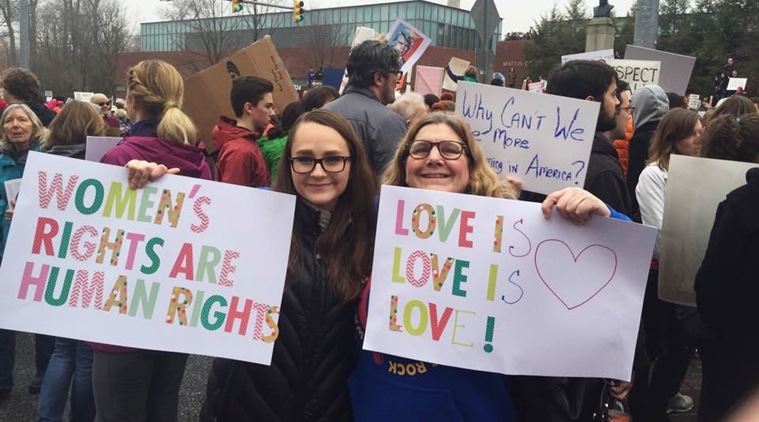 WOMEN'S
RIGHTS ARE
HUMAN RIGHTS
LOVE IS
LOVE IS
LOVE!
Why Can't We
More
in America?
ROCK